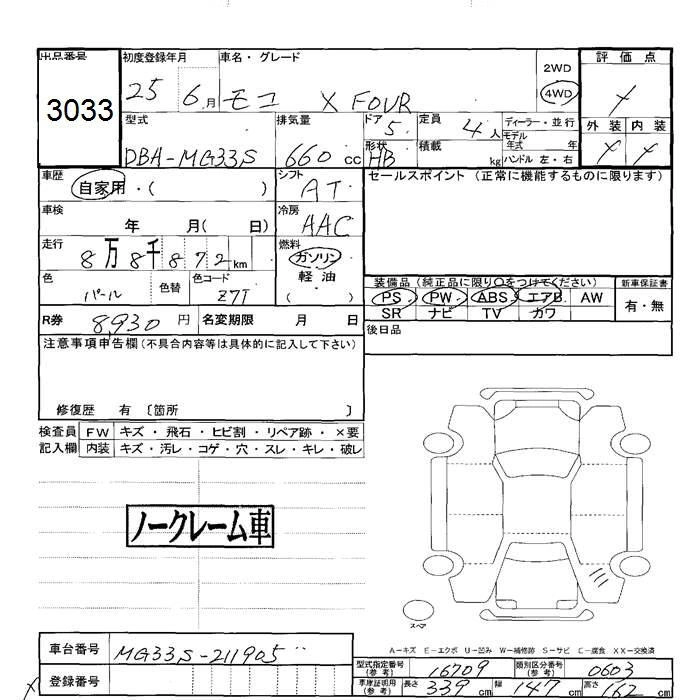 出品番号 初度登録年月 車名・グレード 2WD 評価点
3033 25 6月 モコ X FOUR 4WD
型式 排気量 ドア 5 定員 4人 ディーラー・並行 外装 内装
モデル年式 年
DBA-MG33S 660cc 形状 HB 積載 kg ハンドル 左・右
車歴 自家用・( ) シフト AT セールスポイント(正常に機能するものに限ります)
車検 年 月( 日) 冷房 AAC
走行 8万8千872km 燃料 ガソリン
軽油
( )
色 パール 色替 色コード Z7T 装備品(純正品に限り○をつけてください) 新車保証書
PS PW ABS エアB AW 有・無
SR ナビ TV カワ
R券 8,930円 名変期限 月 日 後日品
注意事項申告欄(不具合内容等は具体的に記入して下さい)
修復歴 有 〔箇所 〕
検査員 FW キズ・飛石・ヒビ割・リペア跡・×要
記入欄 内装 キズ・汚レ・コゲ・穴・スレ・キレ・破レ
ノークレーム車
スペア
A-キズ E-エクボ U-凹み W-補修跡 S-サビ C-腐食 XX-交換済
車台番号 MG33S-211905 型式指定番号(参考) 16709 類別区分番号(参考) 0603
登録番号 車庫証明用(参考) 長さ 339cm 幅 147cm 高さ 162cm